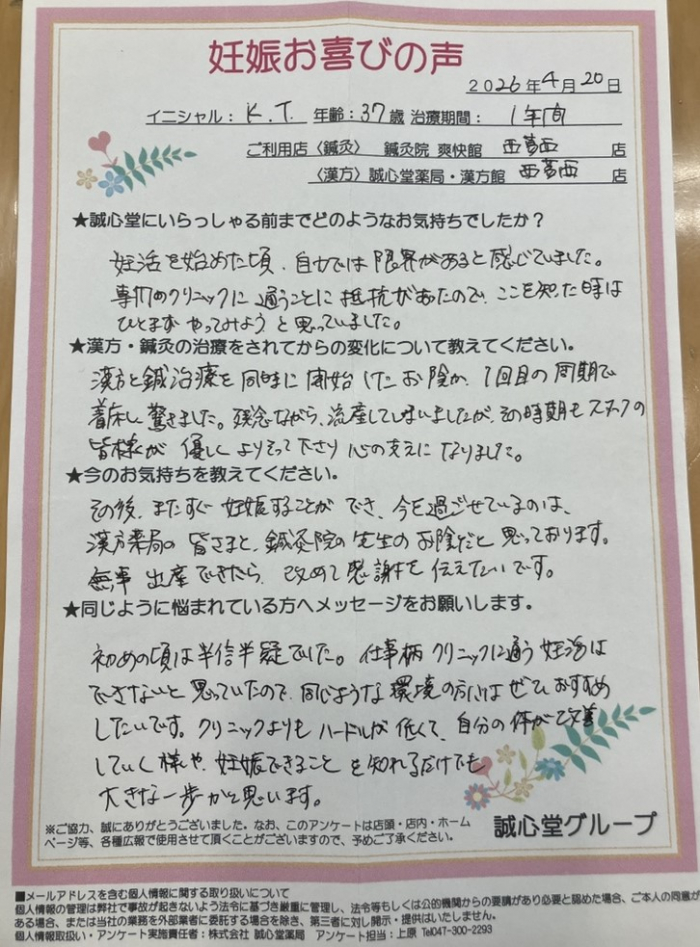 妊娠お喜びの声
2026年4月20日
イニシャル：K.T. 年齢：37歳 治療期間：1年間
ご利用店〈鍼灸〉 鍼灸院 爽快館 西葛西 店
〈漢方〉誠心堂薬局・漢方館 西葛西 店
★誠心堂にいらっしゃる前までどのようなお気持ちでしたか？
妊活を始めた頃、自力では限界があると感じていました。
専門のクリニックに通うことに抵抗があったので、ここを知った時は
ひとまずやってみようと思っていました。
★漢方・鍼灸の治療をされてからの変化について教えてください。
漢方と鍼治療を同時に開始したお陰か、1回目の周期で
着床し驚きました。残念ながら、流産してしまいましたが、その時期もスタッフの
皆様が優しくよりそって下さり心の支えになりました。
★今のお気持ちを教えてください。
その後、またすぐ妊娠することができ、今を過ごせているのは、
漢方薬局の皆さまと、鍼灸院の先生のお陰だと思っております。
無事出産できたら、改めて感謝を伝えたいです。
★同じように悩まれている方へメッセージをお願いします。
初めの頃は半信半疑でした。仕事柄クリニックに通う妊活は
できないと思っていたので、同じような環境の方にはぜひおすすめ
したいです。クリニックよりもハードルが低くて、自分の体が改善
していく様や、妊娠できることを知れるだけでも
大きな一歩かと思います。
※ご協力、誠にありがとうございました。なお、このアンケートは店頭・店内・ホーム
ページ等、各種広報で使用させて頂くことがございますので、予めご了承ください。
誠心堂グループ
■メールアドレスを含む個人情報に関する取り扱いについて
個人情報の管理は弊社で事故が起きないよう法令に基づき厳重に管理し、法令等もしくは公的機関からの要請があり必要と認めた場合、ご本人の同意が
ある場合、または当社の業務を外部業者に委託する場合を除き、第三者に対し開示・提供はいたしません。
個人情報取扱い・アンケート実施責任者：株式会社 誠心堂薬局 アンケート担当：上原 Tel047-300-2293